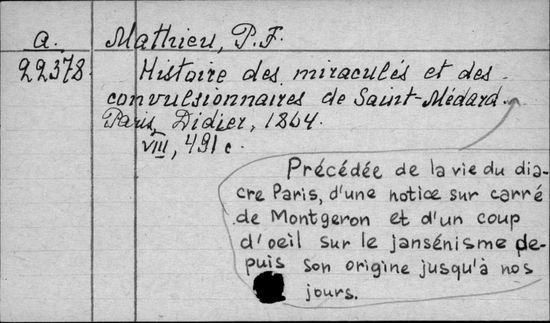 a. Mathieu, P.F.
22378. Histoire des miraculés et des
convulsionnaires de Saint-Médard.
Paris, Didier, 1864.
VIII, 491 c.
Précédée de la vie du dia-
cre Paris, d'une notice sur carré
de Montgeron et d'un coup
d'oeil sur le jansénisme de-
puis son origine jusqu'à nos
jours.